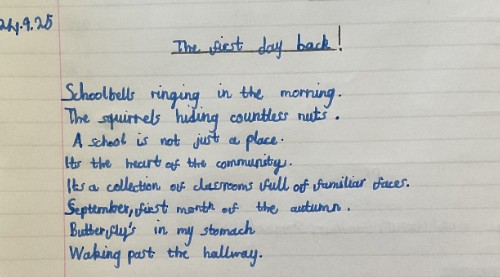 24.9.25
The first day back!
Schoolbells ringing in the morning.
The squirrels hiding countless nuts.
A school is not just a place.
Its the heart of the community.
Its a collection of classrooms full of familiar faces.
September, first month of the autumn.
Butterfly's in my stomach
Waking past the hallway.